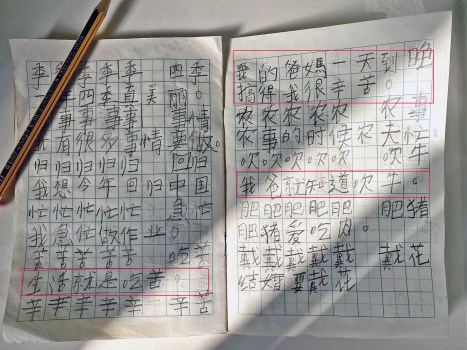 季季季季季 四季
一年四季真美丽。
事事事事 事情
我有很多事情要做。
归归归归归 回归
我想今年回归中国
忙忙忙忙忙 急忙
我急忙做作业。
苦苦苦苦苦 吃苦
生活就是吃苦。
辛辛辛辛辛 辛苦
的爸妈一天到晚
搞得我很辛苦。
农农农农农 农事
农事的时候农夫忙
吹吹吹吹吹 吹牛
我爸就知道吹牛。
肥肥肥肥肥 肥猪
肥猪爱吃肉。
戴戴戴戴戴 戴花
结婚要戴花